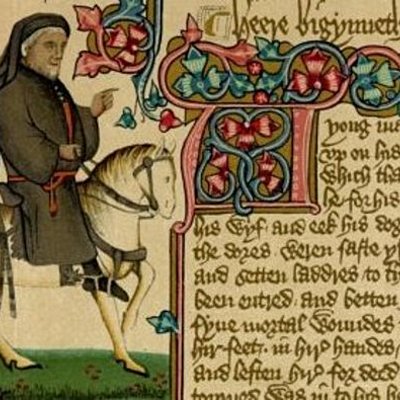 Heere bigynneth
A yong ma
vp on his
which tha
be for his
his wyf and eek his dog
the dores weren faste y
and setten laddres to t
been entred and betten
fyue mortal woundes
hir feet in hir handes
and leften hir for deed
torned was in to his h